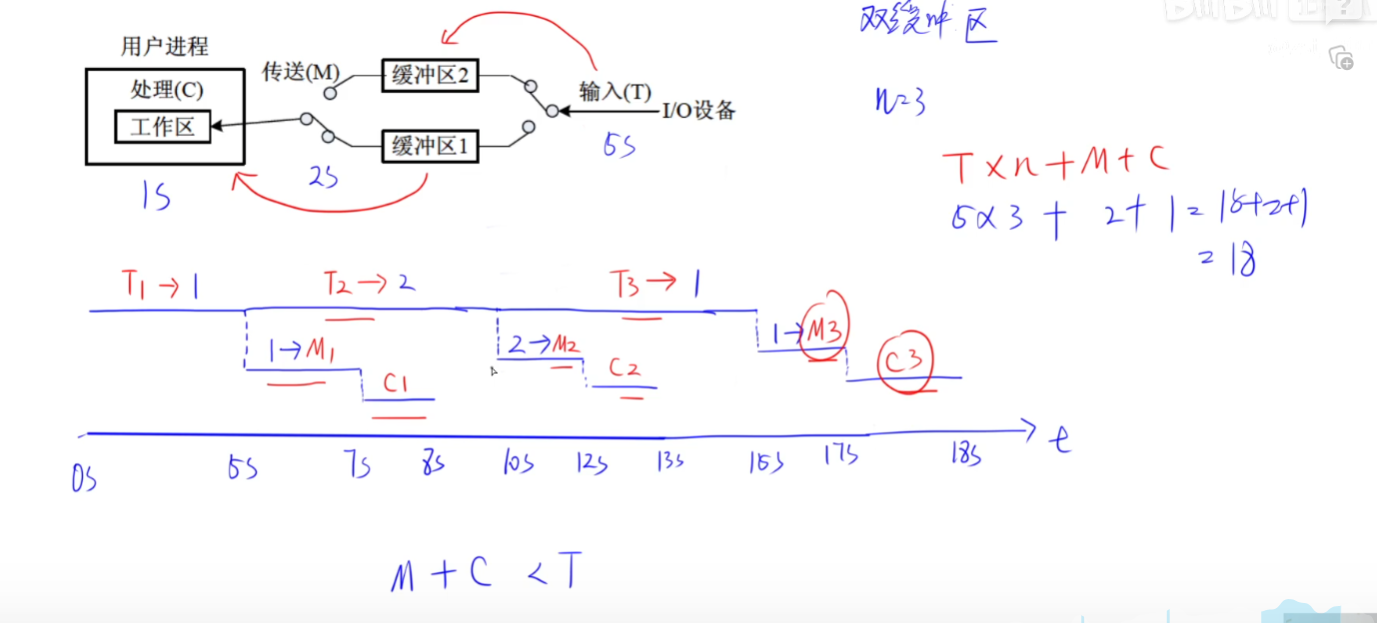 双缓冲区
用户进程
处理(C)
工作区
传送(M)
缓冲区2
缓冲区1
输入(T)
I/O设备
1S
2S
5S
n=3
T×n+M+C
5×3+2+1=15+2+1
=18
T1→1
T2→2
T3→1
1→M1
C1
2→M2
C2
1→M3
C3
t
0S
5S
7S
8S
10S
12S
13S
15S
17S
18S
M+C<T